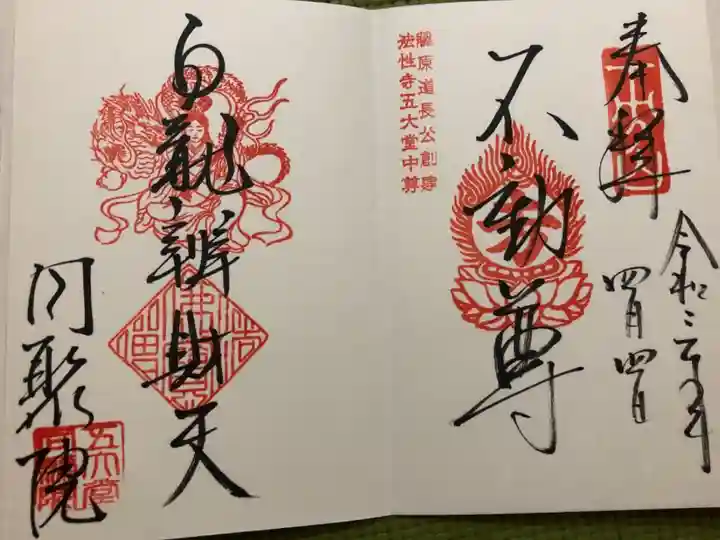 奉拝
令和三年
四月四日
藤原道長公創建
法性寺五大堂中尊
不動尊
白龍辨財天
同聚院
五大堂